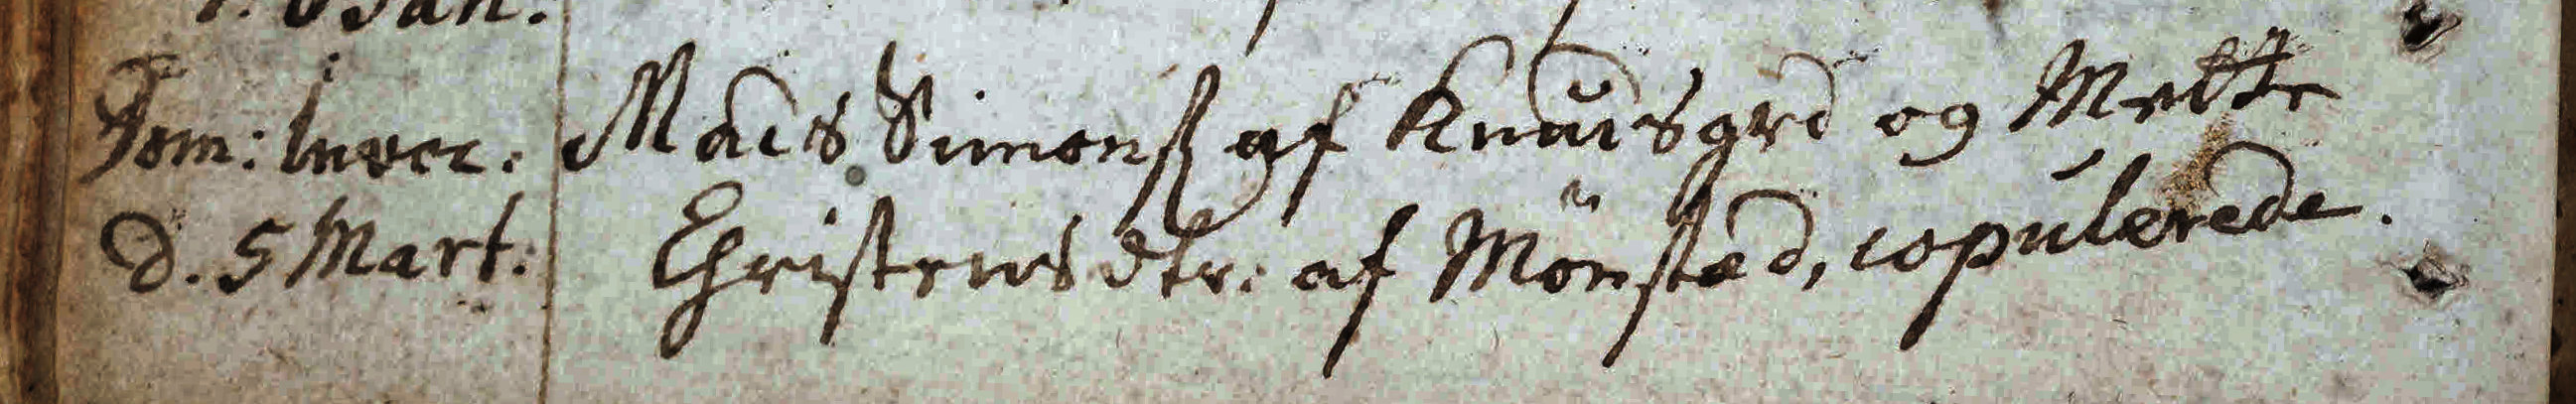 Jan.
Dom: Invoc. Mads Simonss af Knudsgrd og Mette
d. 5 Mart. Christensdtr: af Mönsted, copulerede.